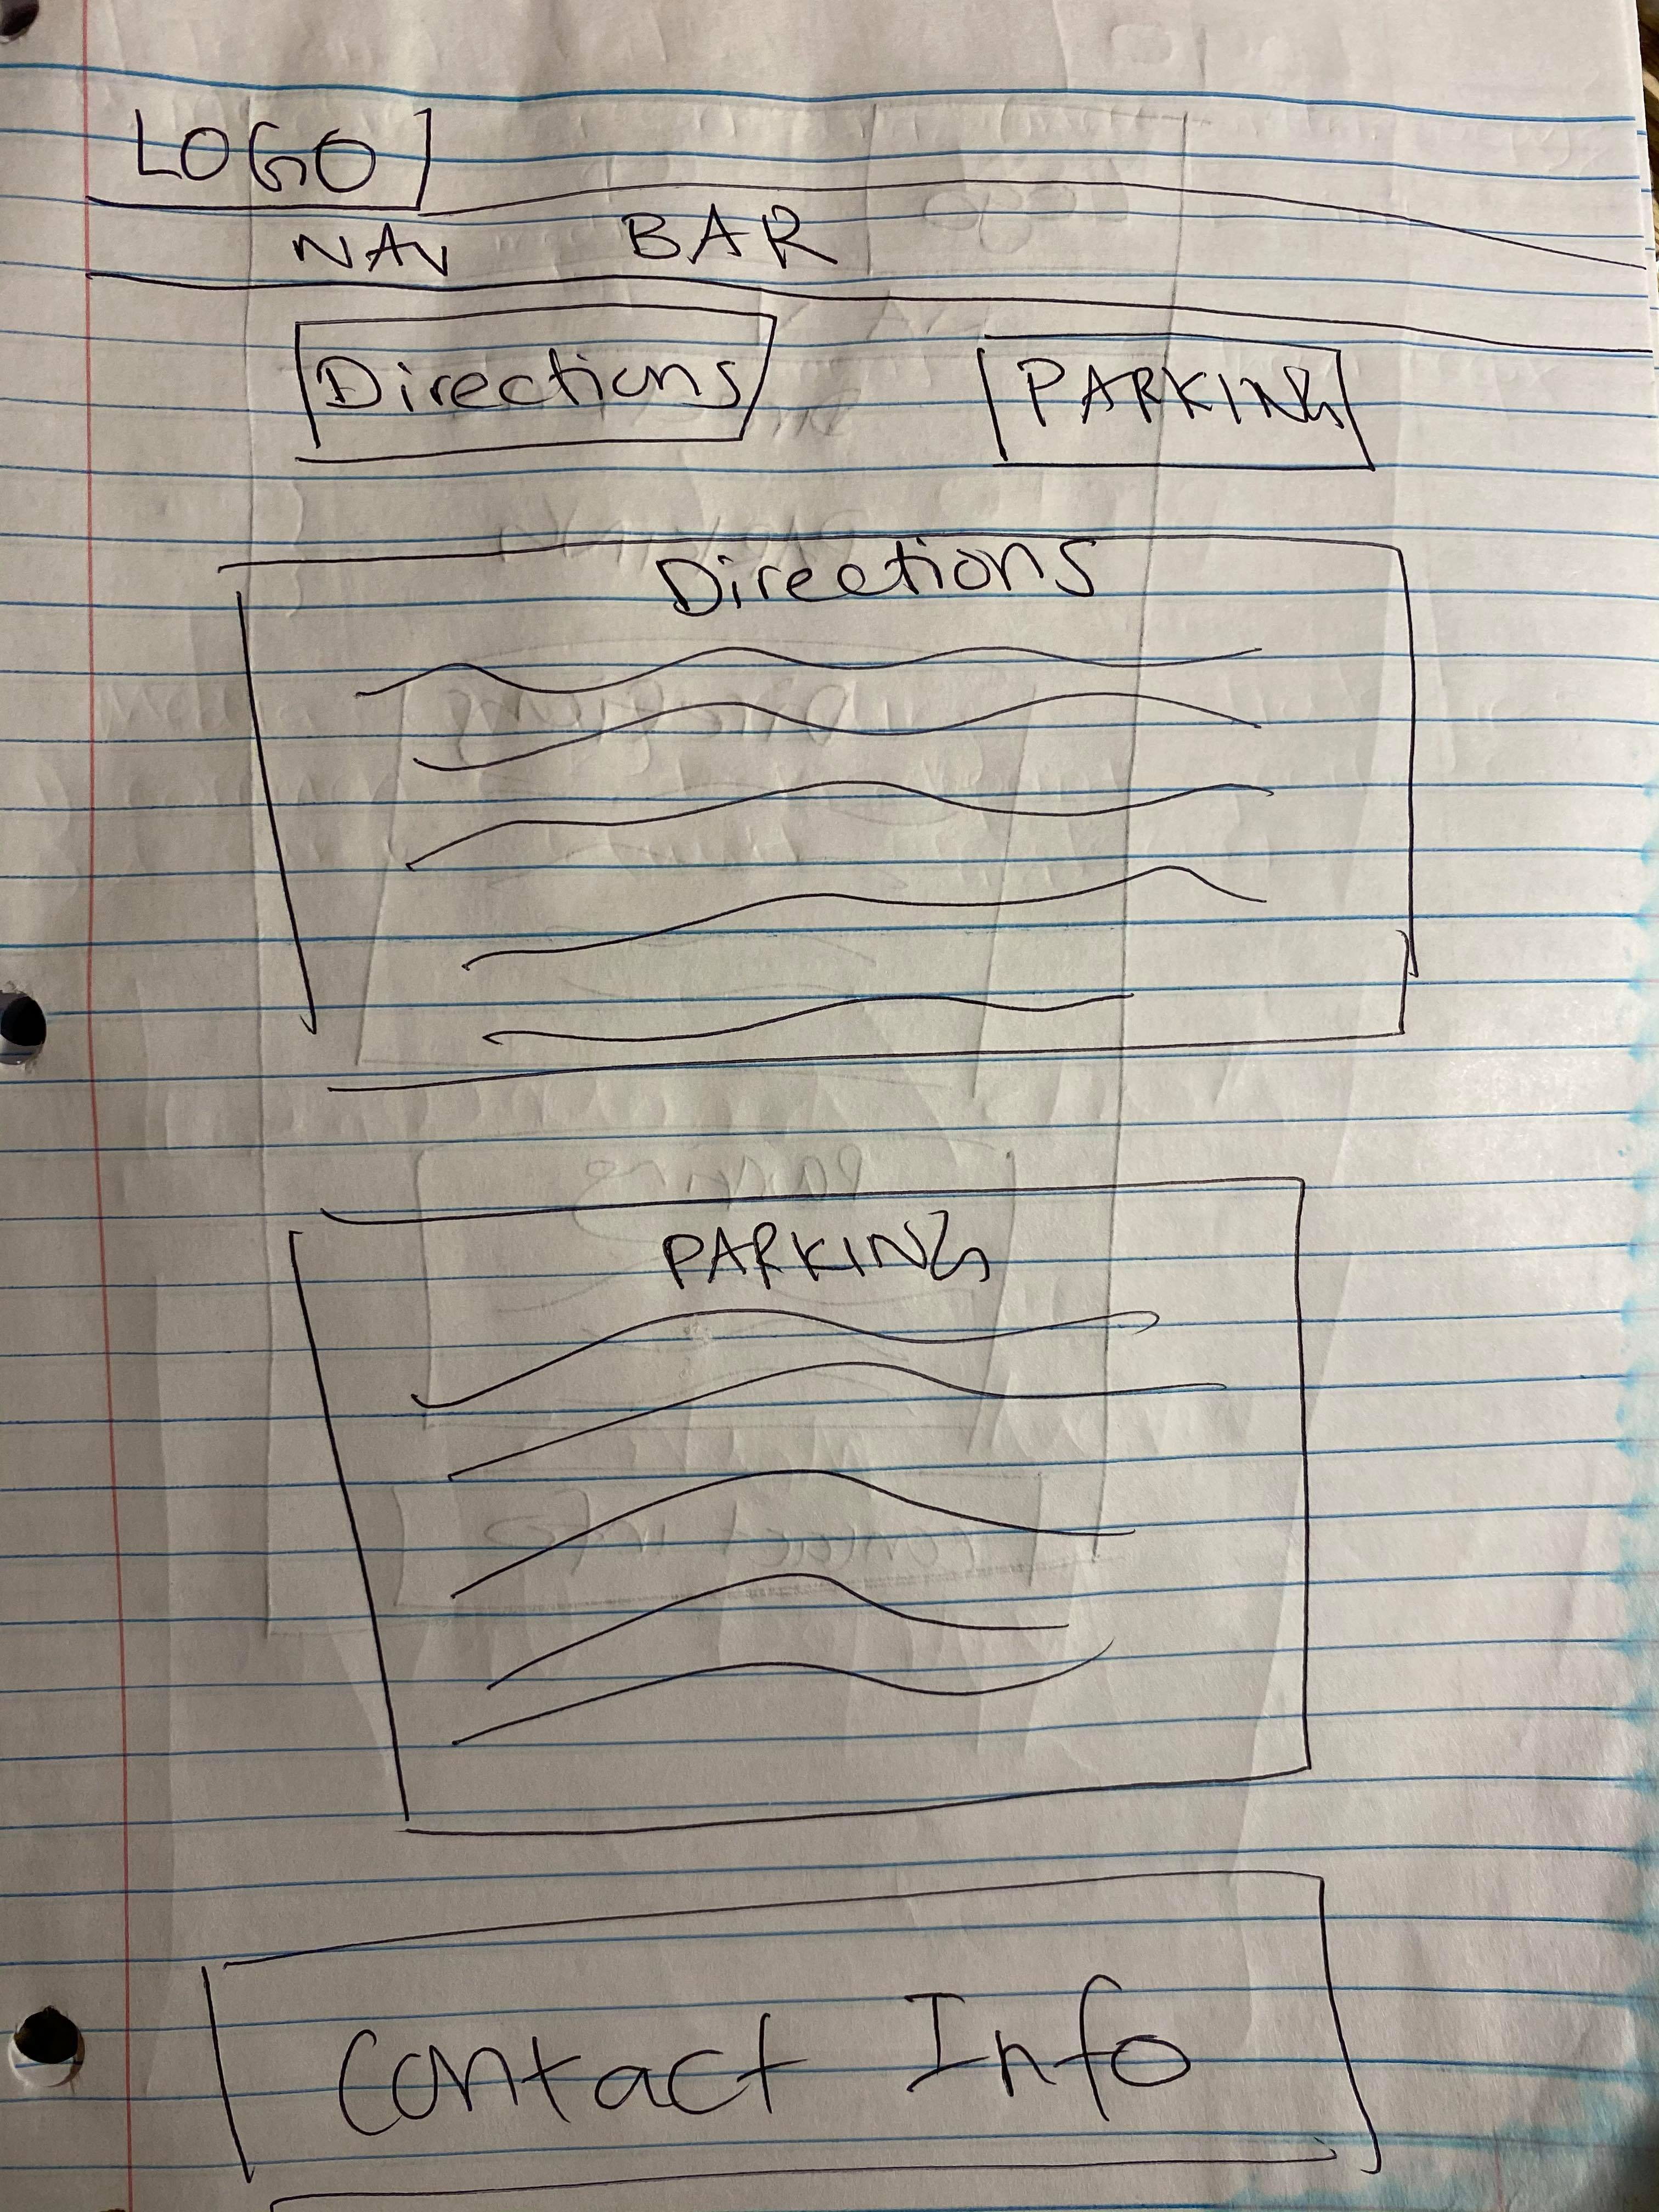 LOGO
NAV BAR
Directions PARKING
Directions
PARKING
Contact Info